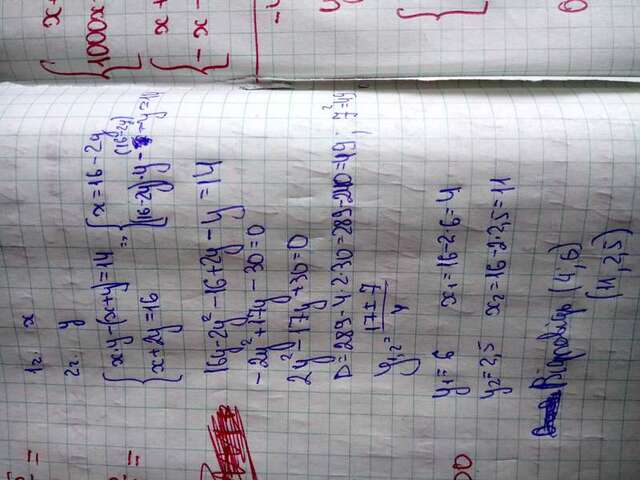 1г. x
2г. y
{ x·y-(x+y)=14
x+2y=16
=> { x=16-2y
(16-2y)·y-(16-2y)-y=14
16y-2y²-16+2y-y=14
-2y²+17y-30=0
2y²-17y+30=0
D=289-4·2·30=289-240=49; 7²=49
y₁,₂= 17±7 / 4
y₁=6 x₁=16-2·6=4
y₂=2,5 x₂=16-2·2,5=11
Відповідь (4; 6)
(11; 2,5)
{ x+
1000x
{ x+
-x-